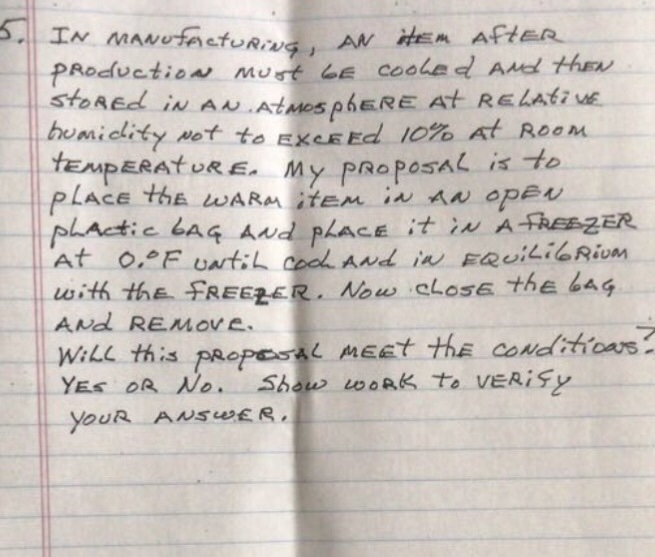 5. IN MANUFACTURING, AN ITEM AFTER
PRODUCTION MUST BE COOLED AND THEN
STORED IN AN ATMOSPHERE AT RELATIVE
humidity NOT to EXCEED 10% AT ROOM
TEMPERATURE. MY PROPOSAL is to
PLACE THE WARM ITEM IN AN OPEN
PLACTIC BAG AND PLACE it iN A FREEZER
At 0.°F UNTIL COOL AND IN EQUILIBRIUM
with the FREEZER. NOW CLOSE the BAG
AND REMOVE.
WILL this PROPOSAL MEET the CONDITIONS?
YES OR NO. Show WORK to VERIFY
YOUR ANSWER.